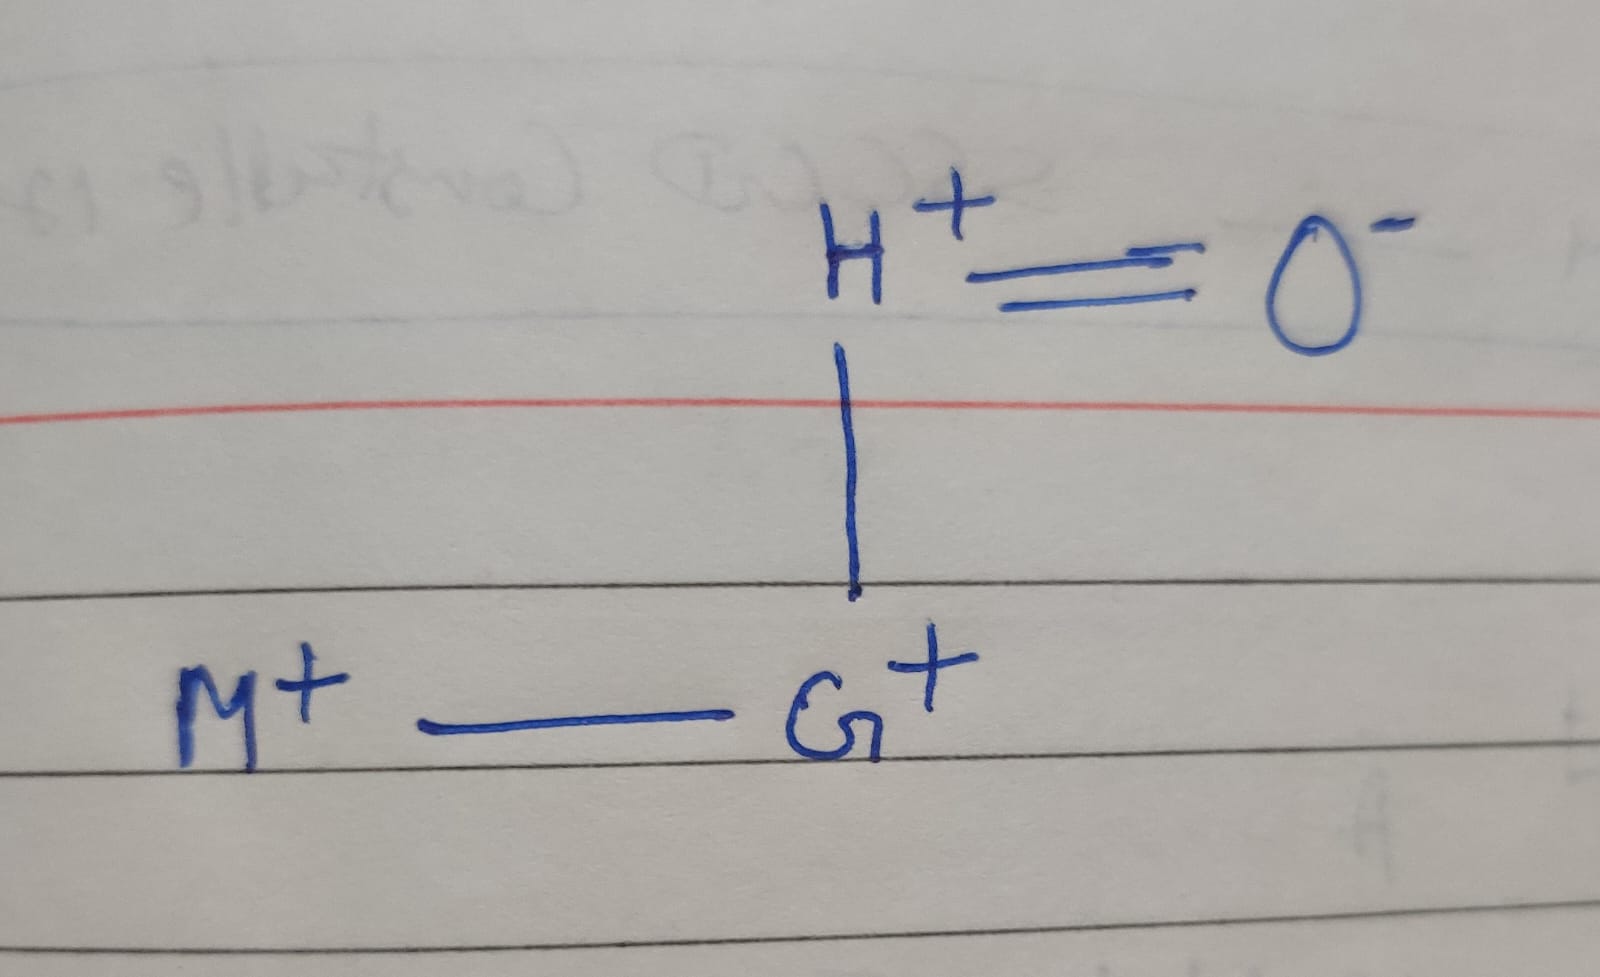 H⁺ = O⁻
M⁺ — G⁺